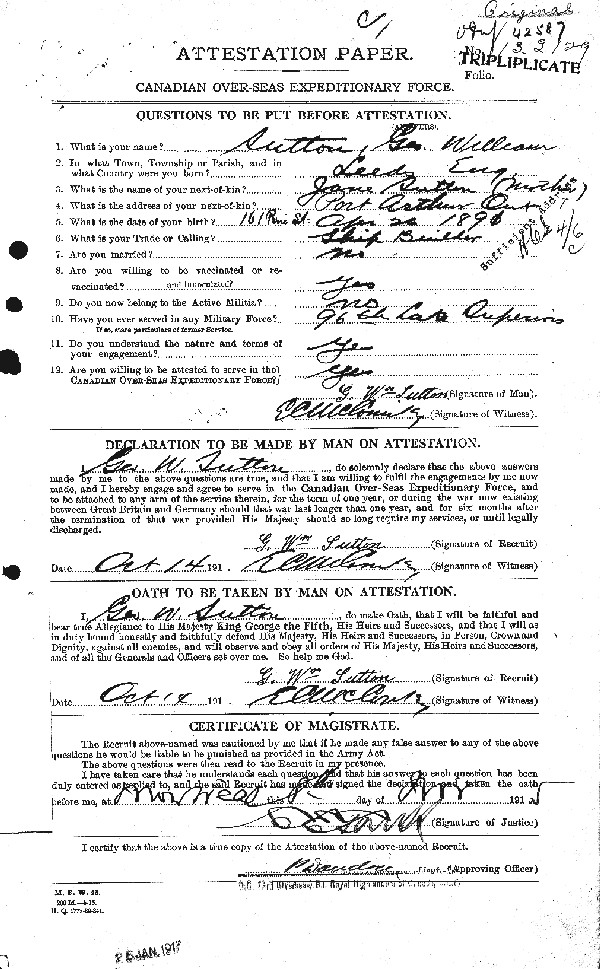 Original
C
42587
No.
TRIPLIPLICATE
Folio.
ATTESTATION PAPER.
CANADIAN OVER-SEAS EXPEDITIONARY FORCE.
QUESTIONS TO BE PUT BEFORE ATTESTATION.
(ANSWERS).
1. What is your name? Sutton, Geo. William
2. In what Town, Township or Parish, and in
what Country were you born? Leeds Eng
3. What is the name of your next-of-kin? Jane Sutton (Mother)
4. What is the address of your next-of-kin? Port Arthur Ont
5. What is the date of your birth? 161 St. Apr 1896
6. What is your Trade or Calling? Ship Builder
7. Are you married? no
8. Are you willing to be vaccinated or re-
vaccinated? and inoculated? Yes
9. Do you now belong to the Active Militia? no
10. Have you ever served in any Military Force? 96th Lake Superiors
If so, state particulars of former Service.
11. Do you understand the nature and terms of
your engagement? Yes
12. Are you willing to be attested to serve in the
CANADIAN OVER-SEAS EXPEDITIONARY FORCE? Yes
G. Wm Sutton (Signature of Man).
(Signature of Witness).
DECLARATION TO BE MADE BY MAN ON ATTESTATION.
I, Geo W. Sutton, do solemnly declare that the above answers
made by me to the above questions are true, and that I am willing to fulfil the engagements by me now
made, and I hereby engage and agree to serve in the Canadian Over-Seas Expeditionary Force, and
to be attached to any arm of the service therein, for the term of one year, or during the war now existing
between Great Britain and Germany should that war last longer than one year, and for six months after
the termination of that war provided His Majesty should so long require my services, or until legally
discharged.
G. Wm Sutton (Signature of Recruit)
Date Oct 14 191 . (Signature of Witness)
OATH TO BE TAKEN BY MAN ON ATTESTATION.
I, Geo W. Sutton, do make Oath, that I will be faithful and
bear true Allegiance to His Majesty King George the Fifth, His Heirs and Successors, and that I will as
in duty bound honestly and faithfully defend His Majesty, His Heirs and Successors, in Person, Crown and
Dignity, against all enemies, and will observe and obey all orders of His Majesty, His Heirs and Successors,
and of all the Generals and Officers set over me. So help me God.
G. Wm Sutton (Signature of Recruit)
Date Oct 14 191 . (Signature of Witness)
CERTIFICATE OF MAGISTRATE.
The Recruit above-named was cautioned by me that if he made any false answer to any of the above
questions he would be liable to be punished as provided in the Army Act.
The above questions were then read to the Recruit in my presence.
I have taken care that he understands each question, and that his answer to each question has been
duly entered as replied to, and the said Recruit has made and signed the declaration and taken the oath
before me, at Montreal this day of 191
(Signature of Justice)
I certify that the above is a true copy of the Attestation of the above-named Recruit.
(Approving Officer)
M. F. W. 23.
H. Q. 1772-39-241.
25 JAN. 1917